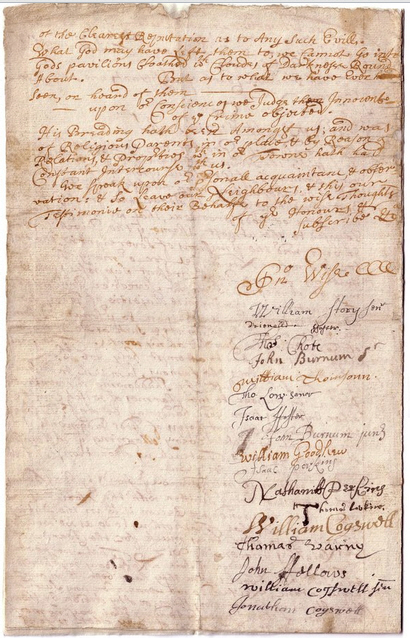 of the Clearest Reputation as to Any such Evills.
What God may have Left them to, we Cannot Go into
Gods pavilions Cloathed wth Cloudes of Darknesse Round
About.
But as to what we have Ever
seen, or heard of them
upon or Consciences we Judge them Innocent
of ye Crime objected.
His Breading hath been Amongst us; and was
of Religious Parents in or place & by Reason
Relations, & Proprties wthin or Towne hath had
Constant Intercourse wth us
We speak upon or Personall acquaintance & obser-
vations: & so Leave our Neighbours, & this our
Testimonie on their Behalfe to the wise Thoughts
of yr Honours,
Subscribe &c
Jno. Wise &c
William Story senr
Reienalld Foster
Thos. Chote
John Burnum sr
William Thomsonn.
Tho. Low senor
Isaac Foster
John Burnum junr
William Goodhew
Isaac perkins
Nathaniel Perkins
Thomas Lovkine
William Cogswell
Thomas Varny
John fellows
William Cogswell sen
Jonathan Cogswell